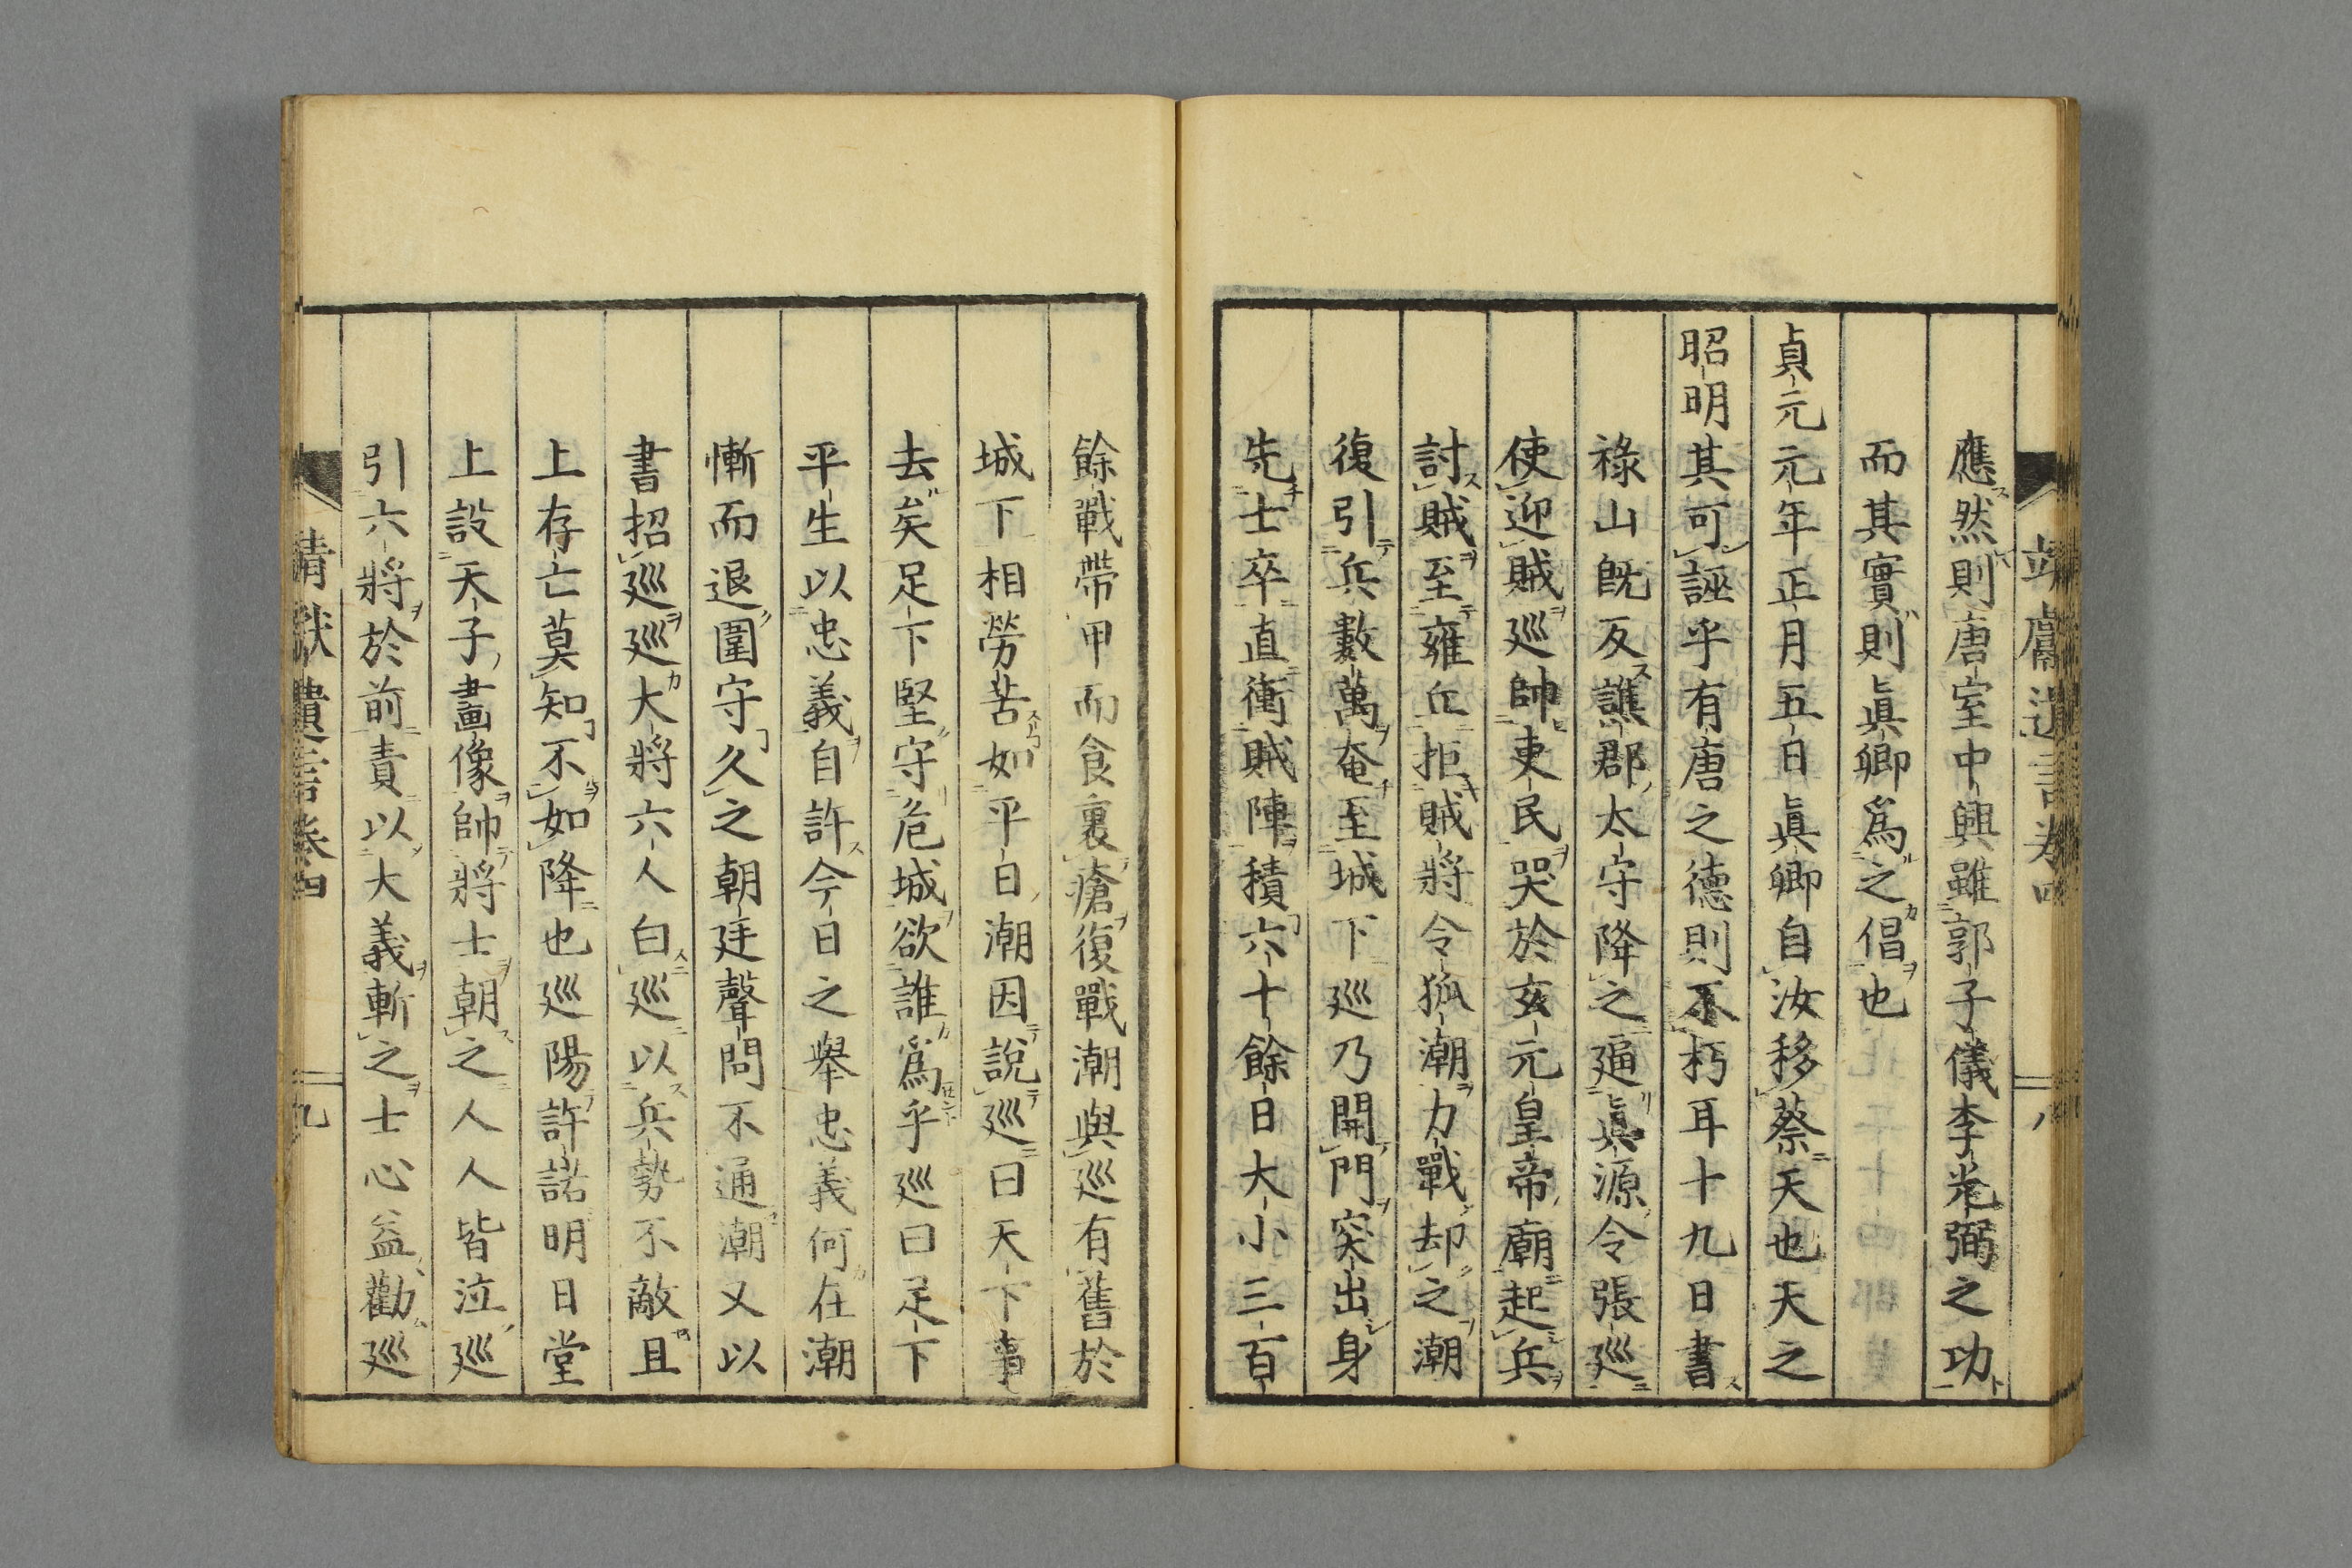 應然則唐室中興雖郭子儀李光弼之功
而其實則眞卿爲之倡也
貞元元年正月五日眞卿自汝移蔡天也天之
昭明其可誣乎有唐之德則不朽耳十九日書
祿山既反譙郡太守降之逼眞源令張巡
使迎賊巡帥吏民哭於玄元皇帝廟起兵
討賊至雍丘拒賊將令狐潮力戰却之潮
復引兵數萬奄至城下巡乃開門突出身
先士卒直衝賊陣積六十餘日大小三百
餘戰帶甲而食裏瘡復戰潮與巡有舊於
城下相勞苦如平日潮因說巡曰天下事
去矣足下堅守危城欲誰爲乎巡曰足下
平生以忠義自許今日之舉忠義何在潮
慚而退圍守久之朝廷聲問不通潮又以
書招巡巡大將六人白巡以兵勢不敵且
上存亡莫知不如降也巡陽許諾明日堂
上設天子畫像帥將士朝之人人皆泣巡
引六將於前責以大義斬之士心益勸巡
靖獻遺言卷四
九